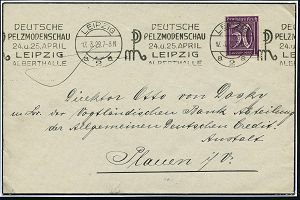 DEUTSCHE
PELZMODENSCHAU
24.u.25.APRIL
LEIPZIG
ALBERTHALLE
LEIPZIG
DEUTSCHE
PELZMODENSCHAU
24.u.25.APRIL
LEIPZIG
ALBERTHALLE
50
Direktor Otto von
der Vogtländischen Bank Abteilung
der Allgemeinen Deutschen Credit-
Anstalt
Plauen i/V.